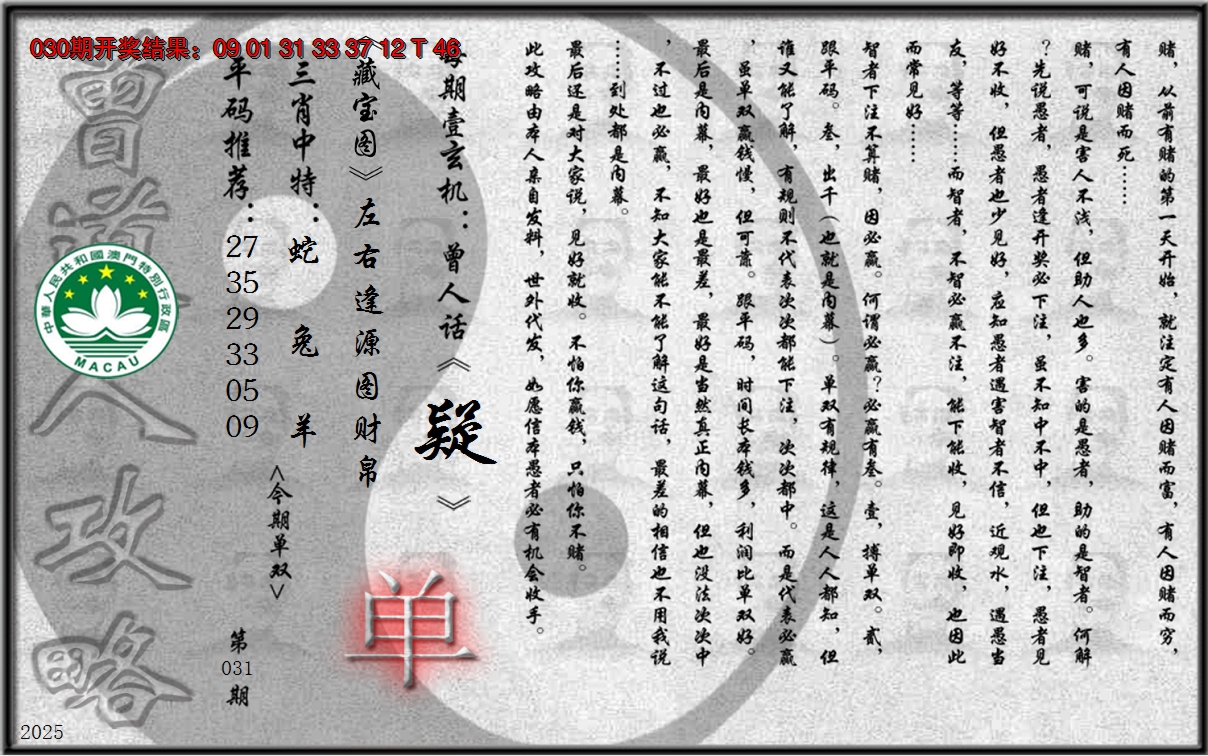 030期开奖结果：09 01 31 33 37 12 T 46
赌，从前有赌的第一天开始，就注定有人因赌而富，有人因赌而穷，
有人因赌而死……
赌，可说是害人不浅，但助人也多。害的是愚者，助的是智者。何解
？先说愚者，愚者逢开奖必下注，虽不知中不中，但也下注，愚者见
好不收，但愚者也少见好，应知愚者遇害智者不信，近观水，遇愚当
友，等等……而智者，不智必赢不注，能下能收，见好即收，也因此
而常见好……
智者下注不算赌，因必赢。何谓必赢？必赢有叁。壹，搏单双。贰，
跟平码。叁，出千（也就是内幕）。单双有规律，这是人人都知，但
谁又能了解，有规则不代表次次都能下注，次次都中。而是代表必赢
，虽单双赢钱慢，但可靠。跟平码，时间长本钱多，利润比单双好。
最后是内幕，最好也是最差，最好是当然真正内幕，但也没法次次中
，不过也必赢，不知大家能不能了解这句话，最差的相信也不用我说
……到处都是内幕。
最后还是对大家说，见好就收。不怕你赢钱，只怕你不赌。
此攻略由本人亲自发料，世外代发，如愿信本愚者必有机会收手。
每期壹玄机：曾人话《疑》
《藏宝图》左右逢源图财帛
单
三肖中特：蛇 兔 羊
<今期单双>
平码推荐：27 35 29 33 05 09
第031期
曾道人攻略
中華人民共和國澳門特別行政區
MACAU
2025